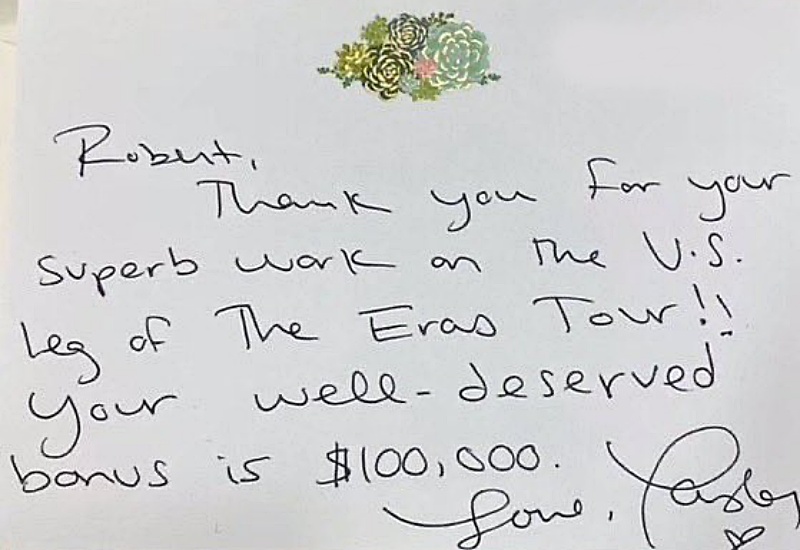 Robert,
Thank you for your
superb work on the U.S.
leg of The Eras Tour!!
Your well-deserved
bonus is $100,000.
Love,